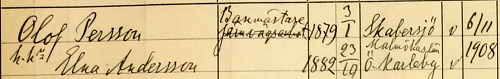 Banmästare 3
Olof Persson järnvägsarbet 1879 1 Skabersjö v 6/11
h. hu 23 Malmöhuslän 1908
Elna Andersson 1882 10 Ö. Karleby v